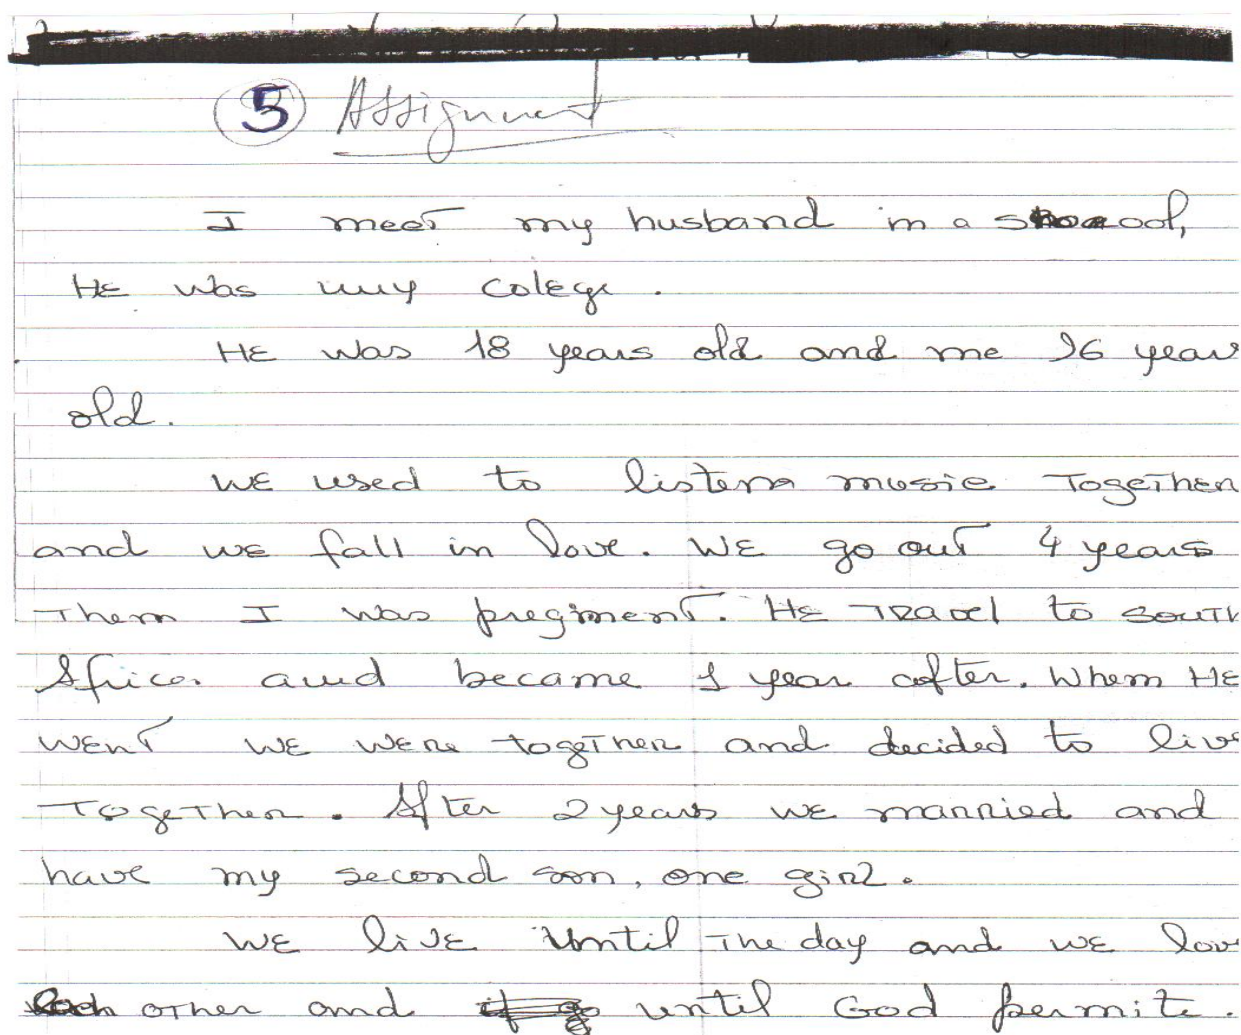 5 Assignment
I meet my husband in a scool,
HE was my colege.
HE was 18 years old and me 16 year
old.
WE used to listem music Together
and we fall in love. WE go out 4 years
Them I was pregment. HE Travel to South
Africa and became 1 year after. Whem HE
WENT WE WERE together and decided to live
Together. After 2 years we married and
have my second son, one girl.
WE livE Until The day and we love
each other and until God permite.